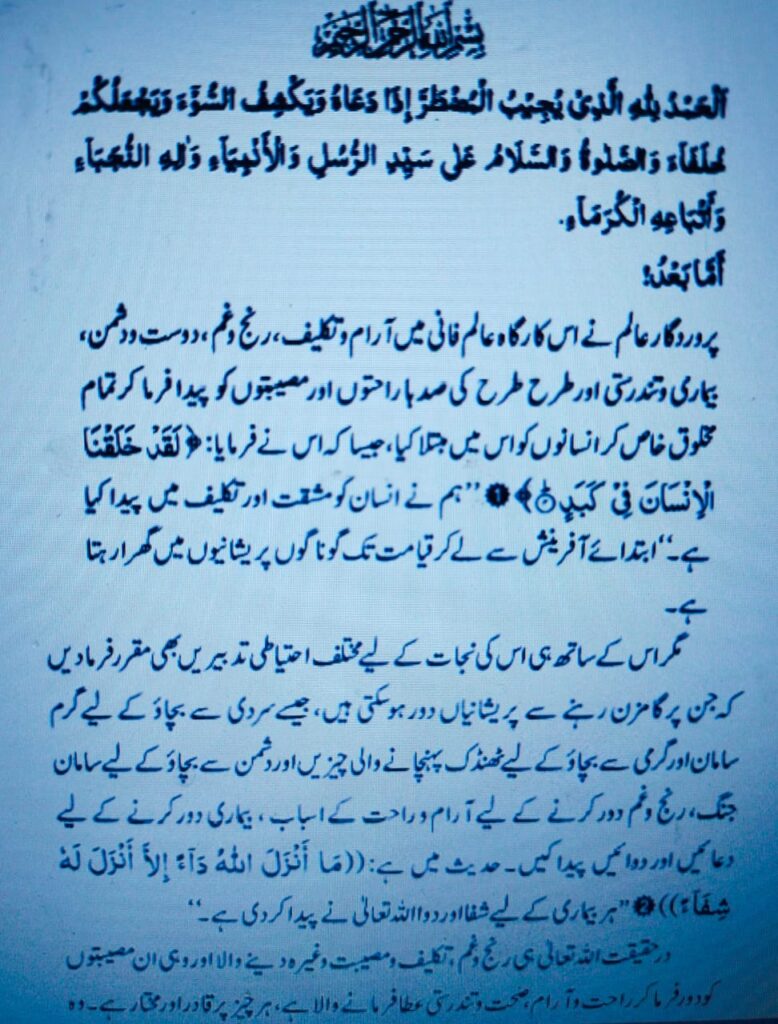 بِسْمِ اللهِ الرَّحْمٰنِ الرَّحِيْمِ
اَلْحَمْدُ لِلّٰهِ الَّذِیْ یُجِیْبُ الْمُضْطَرَّ إِذَا دَعَاهُ وَیَكْشِفُ السُّوْٓءَ وَیَجْعَلُكُمْ
خُلَفَآءَ وَالصَّلٰوةُ وَالسَّلَامُ عَلٰی سَیِّدِ الرُّسُلِ وَالْأَنْبِیَآءِ وَاٰلِهِ النُّجَبَآءِ
وَأَتْبَاعِهِ الْكُرَمَآءِ.
أَمَّا بَعْدُ!
پروردگار عالم نے اس کارگاہ عالم فانی میں آرام و تکلیف، رنج و غم، دوست و دشمن،
بیماری و تندرستی اور طرح طرح کی صدہا راحتوں اور مصیبتوں کو پیدا فرما کر تمام
مخلوق خاص کر انسانوں کو اس میں مبتلا کیا، جیسا کہ اس نے فرمایا: ﴿لَقَدْ خَلَقْنَا
الْاِنْسَانَ فِیْ كَبَدٍ﴾ ❶ ’’ہم نے انسان کو مشقت اور تکلیف میں پیدا کیا
ہے۔‘‘ ابتدائے آفرینش سے لے کر قیامت تک گوناگوں پریشانیوں میں گھرا رہتا
ہے۔
مگر اس کے ساتھ ہی اس کی نجات کے لیے مختلف احتیاطی تدبیریں بھی مقرر فرمادیں
کہ جن پر گامزن رہنے سے پریشانیاں دور ہوسکتی ہیں، جیسے سردی سے بچاؤ کے لیے گرم
سامان اور گرمی سے بچاؤ کے لیے ٹھنڈک پہنچانے والی چیزیں اور دشمن سے بچاؤ کے لیے سامان
جنگ، رنج و غم دور کرنے کے لیے آرام و راحت کے اسباب، بیماری دور کرنے کے لیے
دعائیں اور دوائیں پیدا کیں۔ حدیث میں ہے: ((مَا أَنْزَلَ اللهُ دَآءً إِلاَّ أَنْزَلَ لَهٗ
شِفَآءً)) ❷ ’’ہر بیماری کے لیے شفا اور دوا اللہ تعالیٰ نے پیدا کردی ہے۔‘‘
درحقیقت اللہ تعالیٰ ہی رنج و غم، تکلیف و مصیبت وغیرہ دینے والا اور وہی ان مصیبتوں
کو دور فرما کر راحت و آرام، صحت و تندرستی عطا فرمانے والا ہے، ہر چیز پر قادر اور مختار ہے۔ وہ